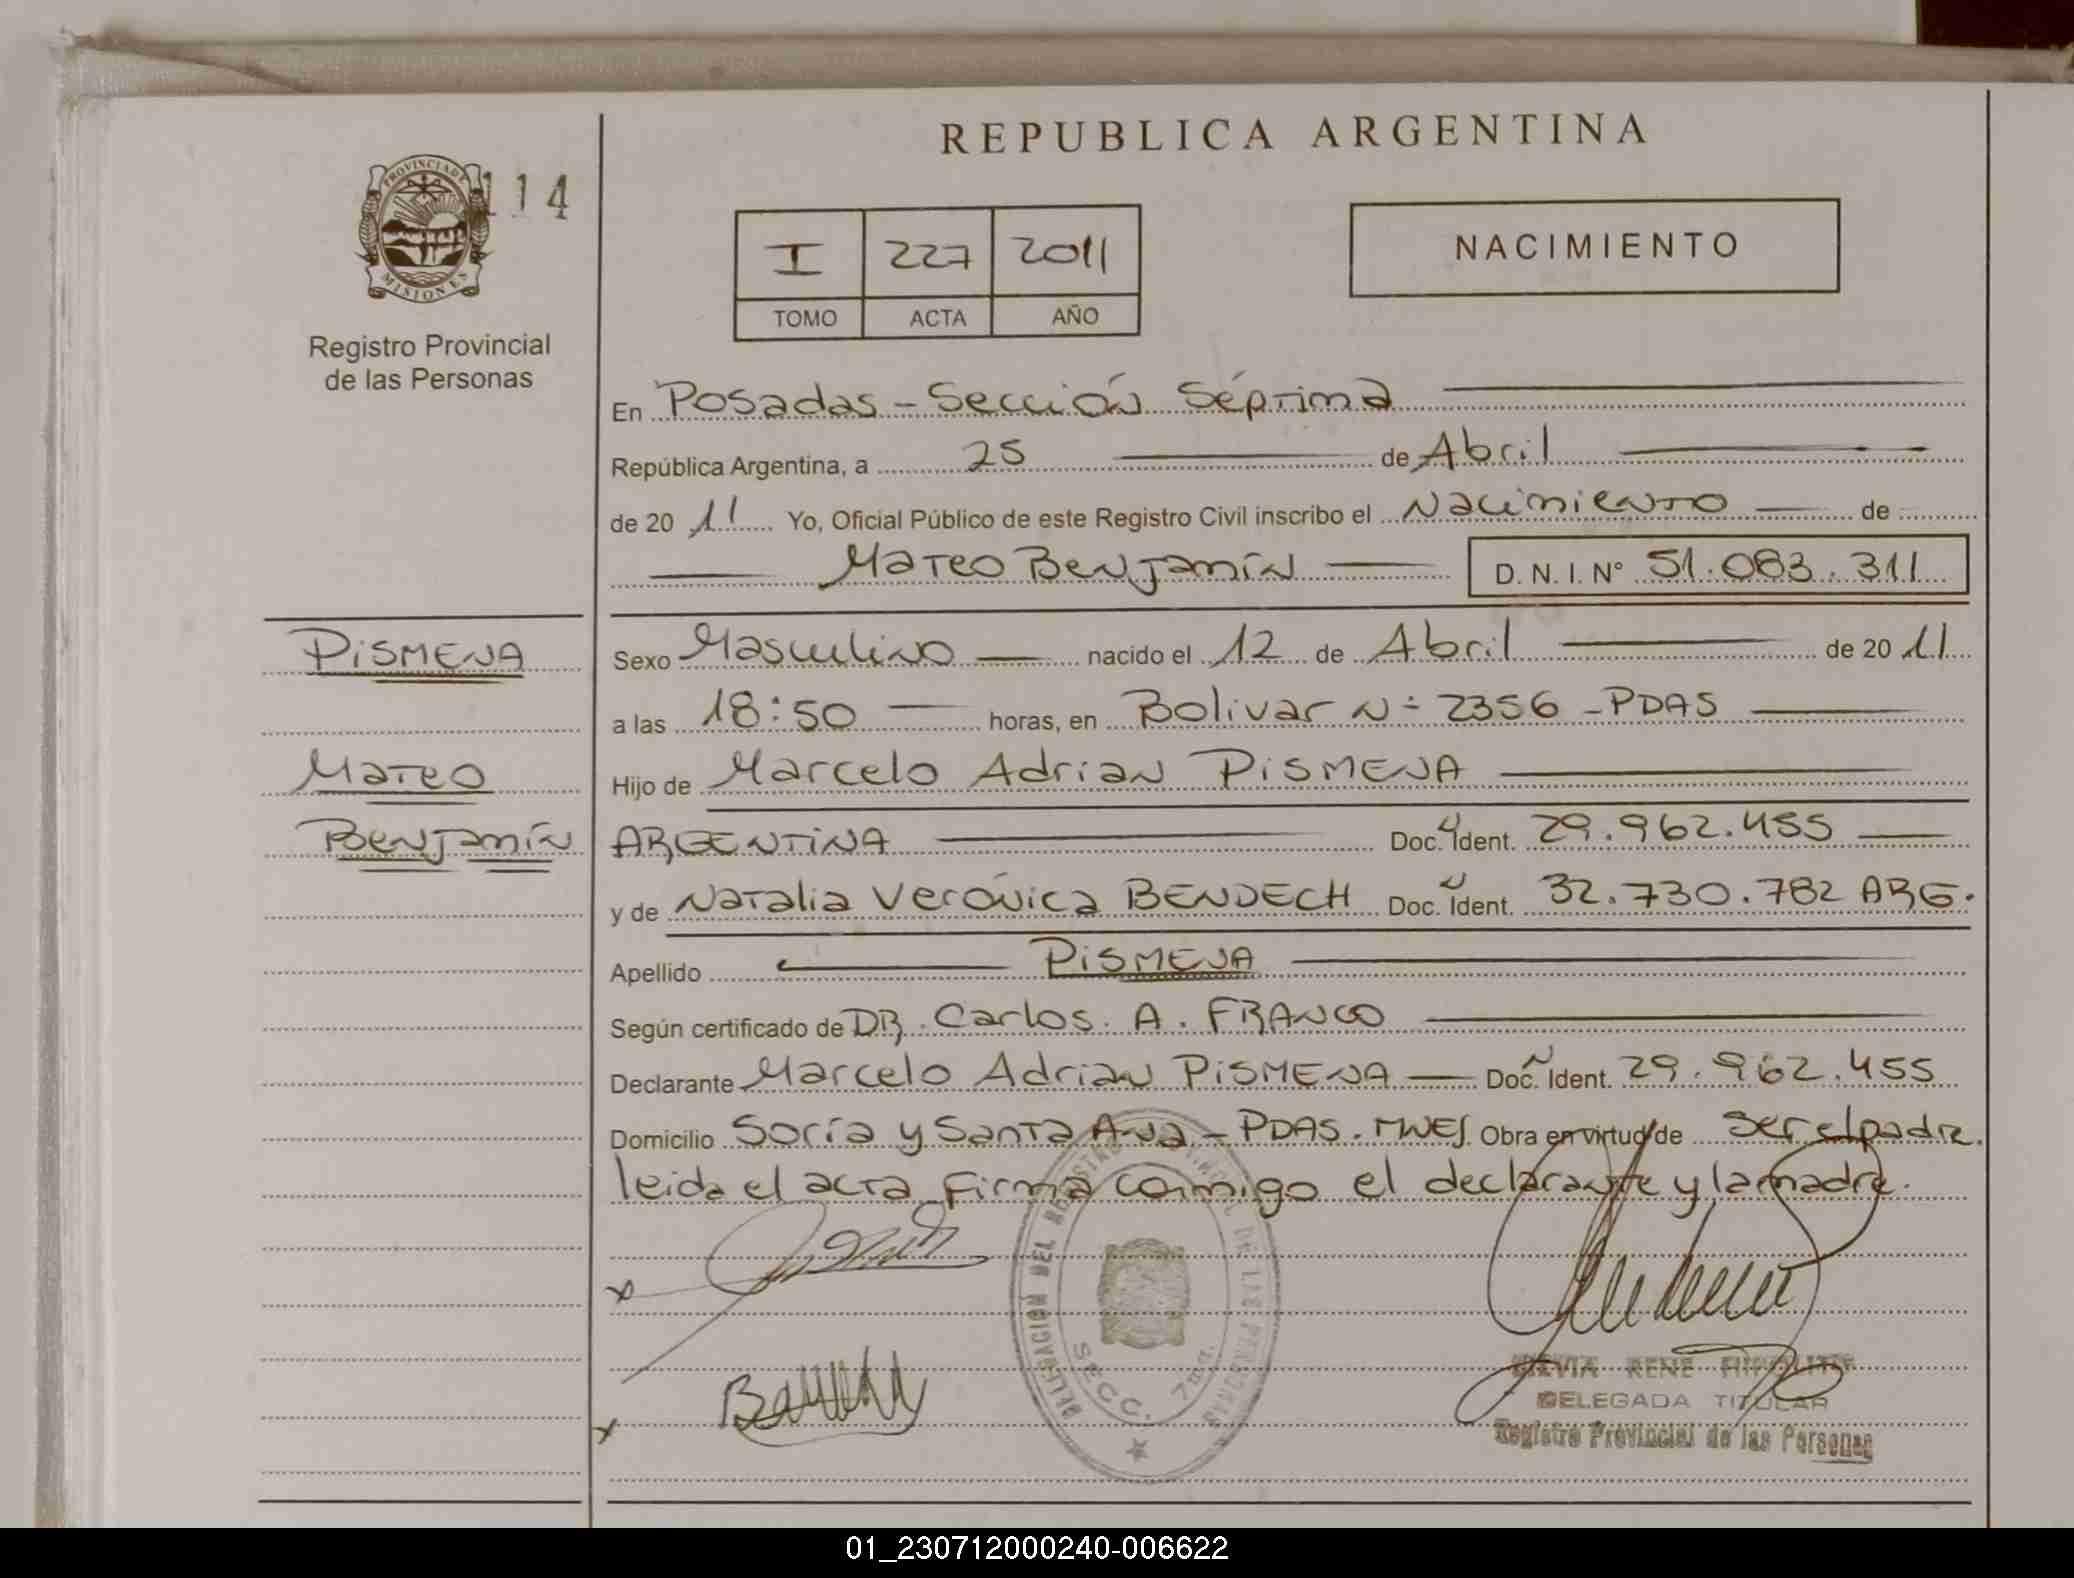 REPUBLICA ARGENTINA
PROVINCIA DE
MISIONES
114
Registro Provincial
de las Personas
I 227 2011
TOMO ACTA AÑO
NACIMIENTO
En Posadas - Sección Séptima
República Argentina, a 25 de Abril
de 20 11 Yo, Oficial Público de este Registro Civil inscribo el Nacimiento de
Mateo Benjamín D. N. I. N° 51.083.311
PISMENA
Mateo
Benjamín
Sexo Masculino nacido el 12 de Abril de 20 11
a las 18:50 horas, en Bolivar N° 2356 - PDAS
Hijo de Marcelo Adrian PISMENA
ARGENTINA Doc. Ident. 29.962.455
y de Natalia Verónica BENDECH Doc. Ident. 32.730.782 ARG.
Apellido PISMENA
Según certificado de DR. Carlos. A. FRANCO
Declarante Marcelo Adrian PISMENA Doc. Ident. 29.962.455
Domicilio Soría y Santa Ana - PDAS. MNES. Obra en virtud de ser el padre.
leida el acta firma conmigo el declarante y la madre.
DELEGACIÓN DEL REGISTRO PROVINCIAL DE LAS PERSONAS
SECC. 7ma.
RENE
DELEGADA TITULAR
Registro Provincial de las Personas
01_230712000240-006622